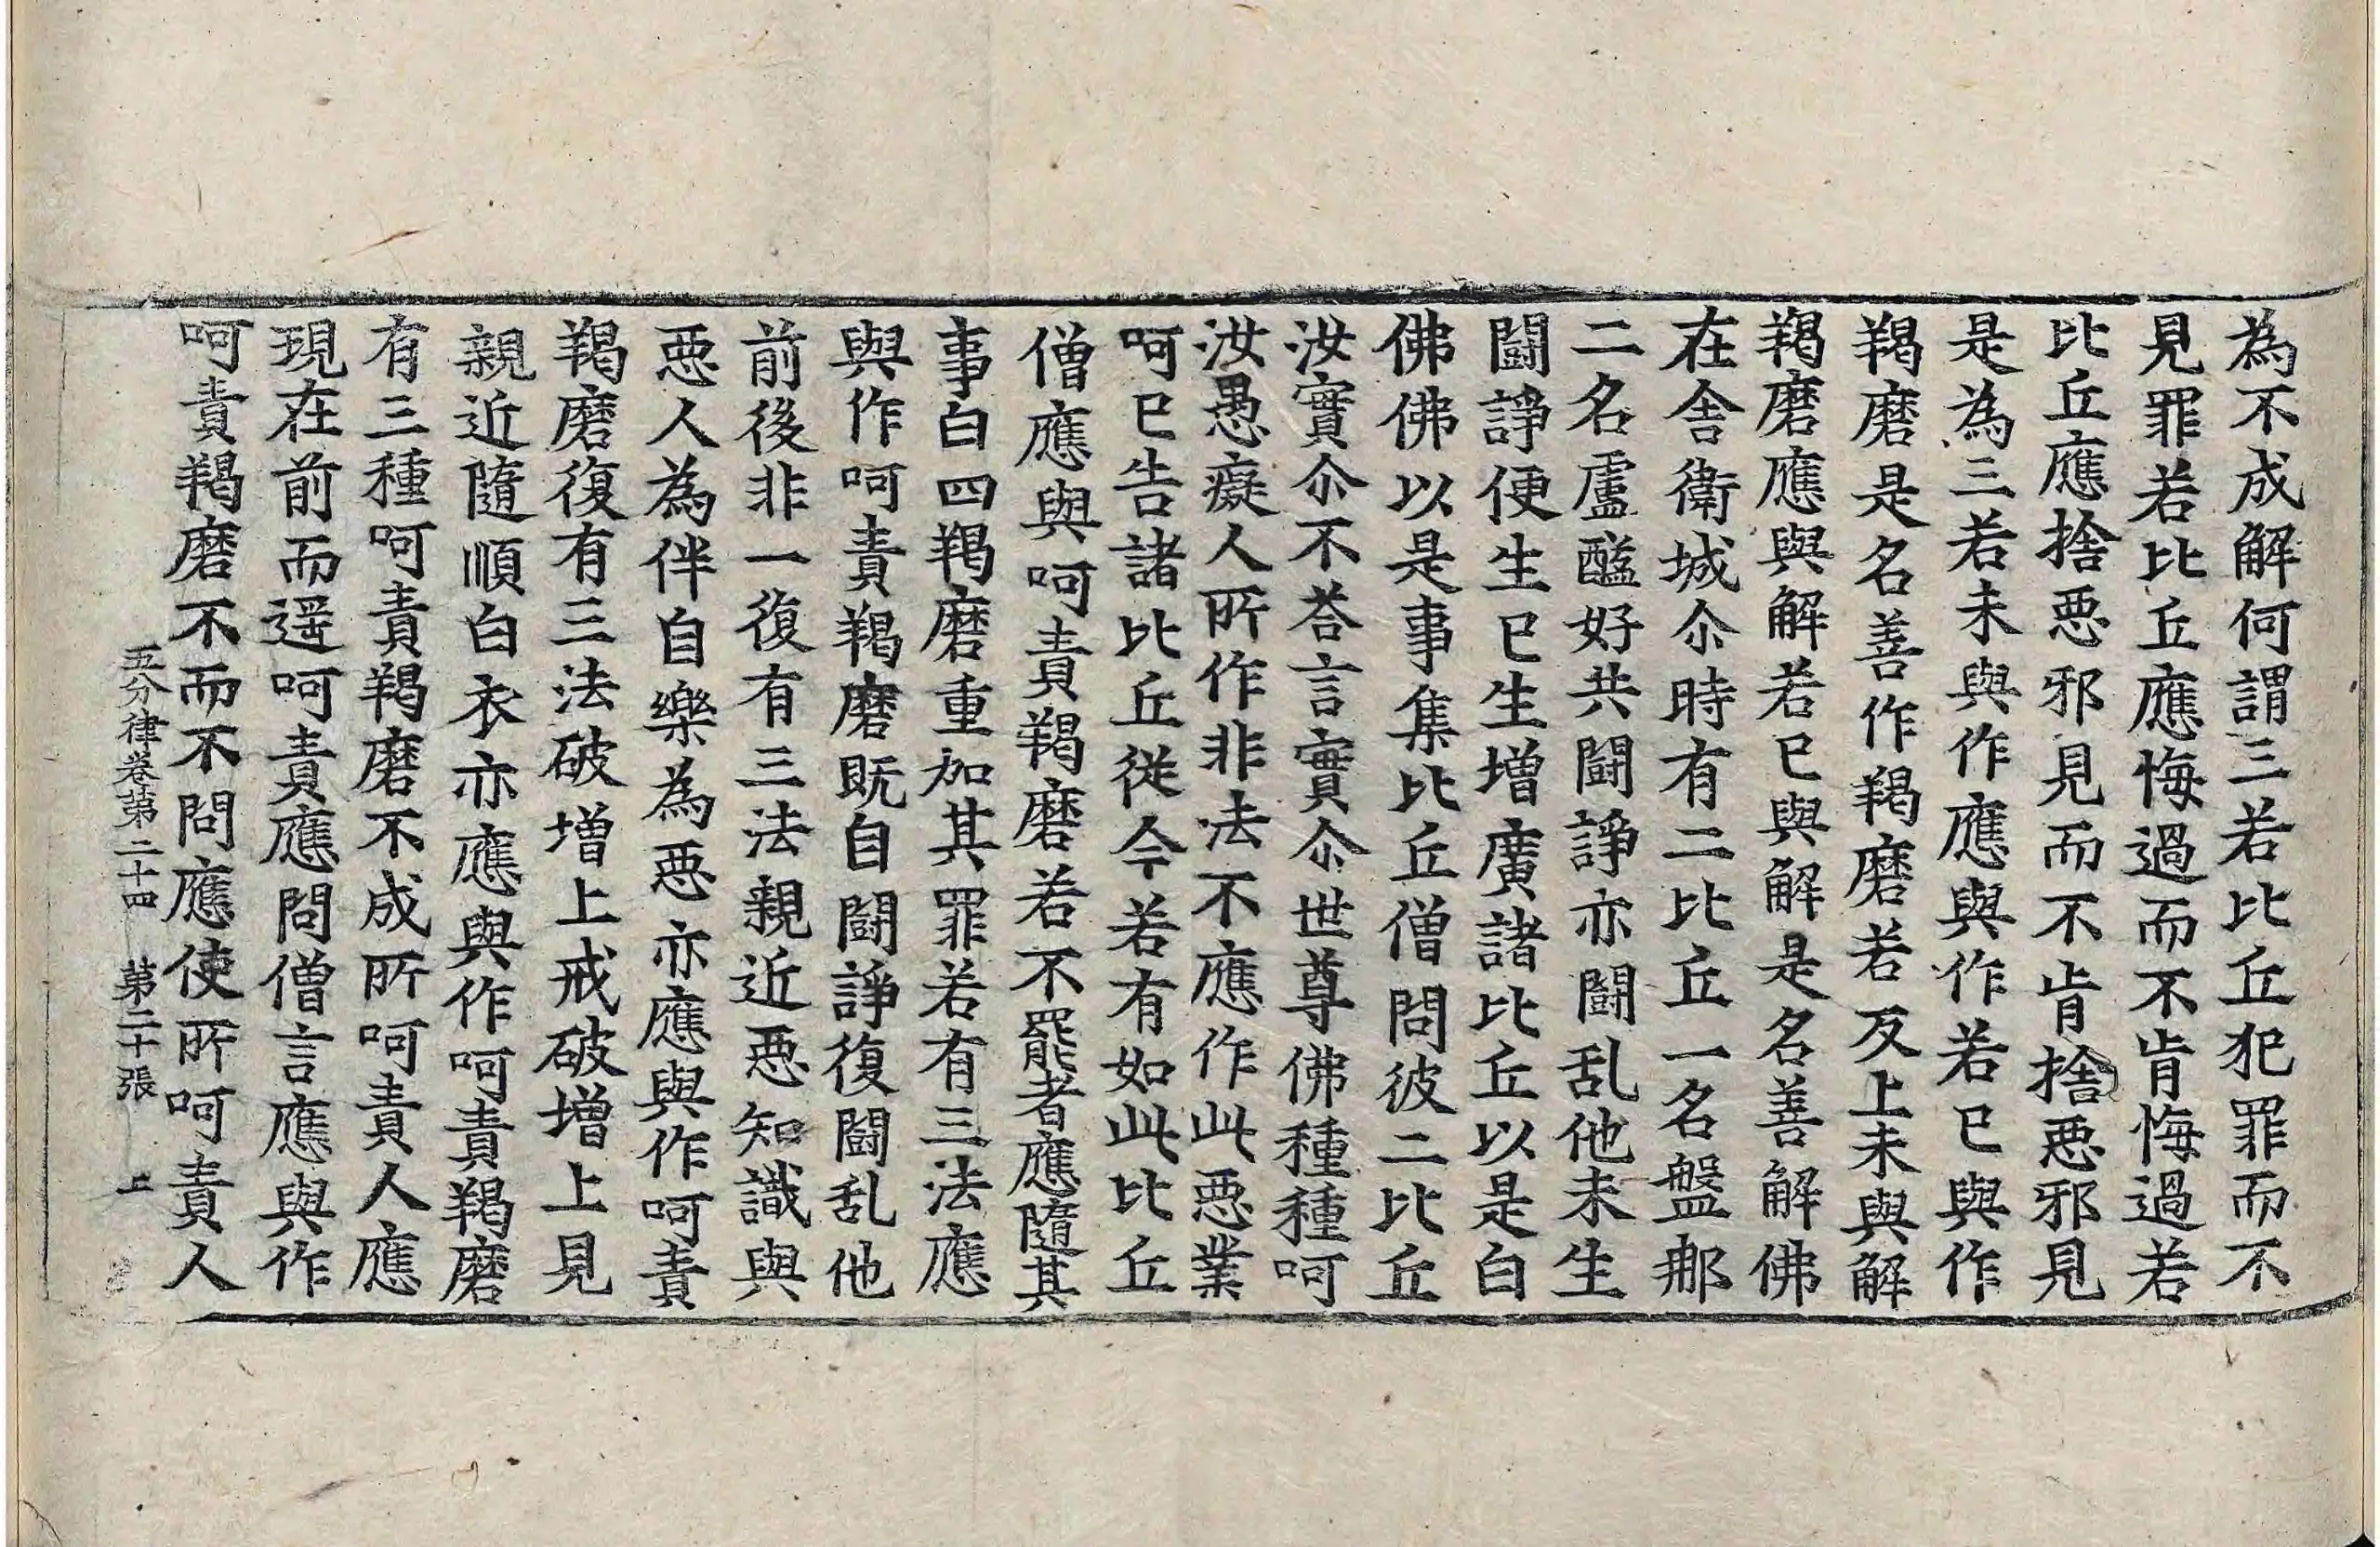 為不成解何謂三若比丘犯罪而不
見罪若比丘應悔過而不肯悔過若
比丘應捨惡邪見而不肯捨惡邪見
是為三若未與作應與作若已與作
羯磨是名善作羯磨若反上未與解
羯磨應與解若已與解是名善解佛
在舍衛城尒時有二比丘一名盤那
二名盧醯好共鬪諍亦鬪乱他未生
鬪諍便生已生增廣諸比丘以是白
佛佛以是事集比丘僧問彼二比丘
汝實尒不荅言實尒世尊佛種種呵
汝愚癡人所作非法不應作此惡業
呵已告諸比丘從今若有如此比丘
僧應與呵責羯磨若不罷者應隨其
事白四羯磨重加其罪若有三法應
與作呵責羯磨既自鬪諍復鬪乱他
前後非一復有三法親近惡知識與
惡人為伴自樂為惡亦應與作呵責
羯磨復有三法破增上戒破增上見
親近隨順白衣亦應與作呵責羯磨
有三種呵責羯磨不成所呵責人應
現在前而遥呵責應問僧言應與作
呵責羯磨不而不問應使所呵責人
五分律卷第二十四 第二十張 上